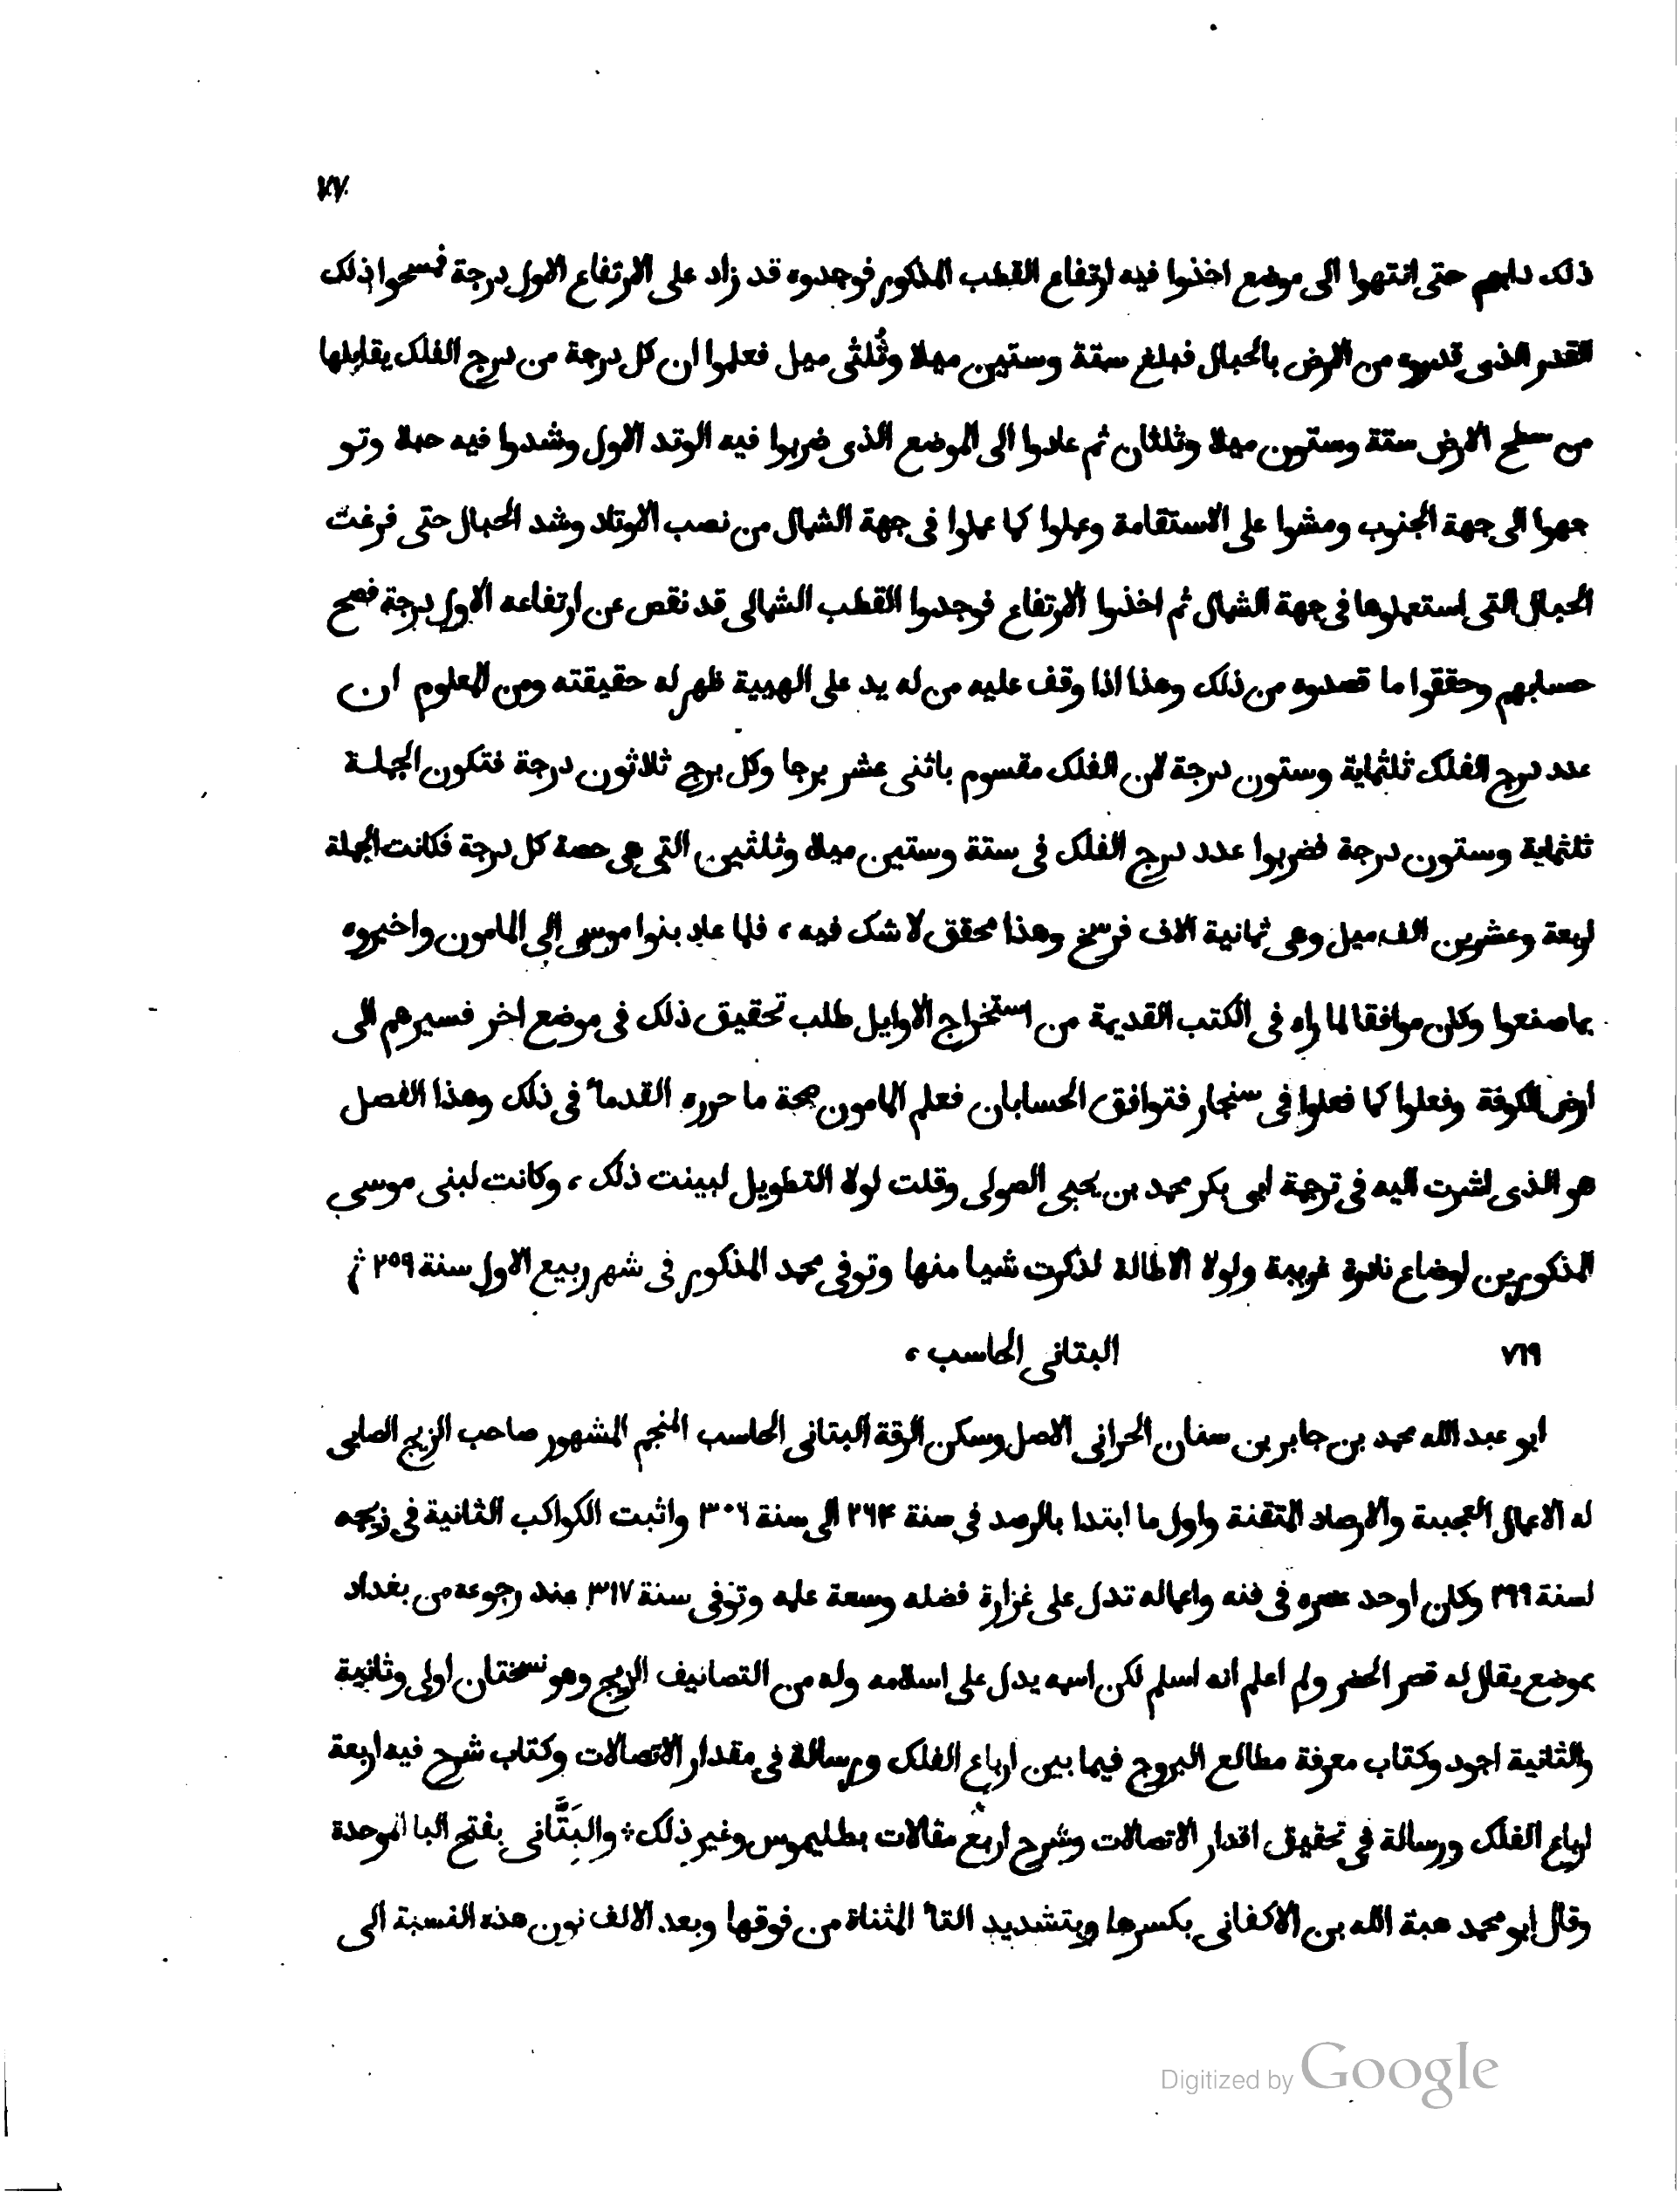 ٧٧
ذلك دابهم حتى انتهوا الى موضع اخذوا فيه ارتفاع القطب المذكور فوجدوه قد زاد على الارتفاع الاول درجة فمسحوا ذلك
القدر الذى قدروه من الارض بالحبال فبلغ ستة وستين ميلا وثُلثى ميل فعلموا ان كل درجة من درج الفلك يقابلها
من سطح الارض ستة وستون ميلا وثلثان ثم عادوا الى الموضع الذى ضربوا فيه الوتد الاول وشدوا فيه حبلا وتو
جهوا الى جهة الجنوب ومشوا على الاستقامة وعملوا كما عملوا فى جهة الشمال من نصب الاوتاد وشد الحبال حتى فرغت
الحبال التى استعملوها فى جهة الشمال ثم اخذوا الارتفاع فوجدوا القطب الشمالى قد نقص عن ارتفاعه الاول درجة فصح
حسابهم وحققوا ما قصدوه من ذلك وهذا اذا وقف عليه من له يد على الهيية ظهر له حقيقته ومن المعلوم ان
عدد درج الفلك ثلثماية وستون درجة لان الفلك مقسوم باثنى عشر برجا وكل برج ثلاثون درجة فتكون الجملة
ثلثماية وستون درجة فضربوا عدد درج الفلك فى ستة وستين ميلا وثلثين التى هى حصة كل درجة فكانت الجملة
اربعة وعشرين الف ميل وهى ثمانية الاف فرسخ وهذا محقق لا شك فيه ، فلما عاد بنوا موسى الى المامون واخبروه
بما صنعوا وكان موافقا لما راه فى الكتب القديمة من استخراج الاوايل طلب تحقيق ذلك فى موضع اخر فسيرهم الى
ارض الكوفة وفعلوا كما فعلوا فى سنجار فتوافق الحسابان فعلم المامون صحة ما حرره القدماء فى ذلك وهذا الفصل
هو الذى اشرت اليه فى ترجمة ابى بكر محمد بن يحيى الصولى وقلت لولا التطويل لبينت ذلك ، وكانت لبنى موسى
المذكورين اوضاع نادرة غريبة ولولا الاطالة لذكرت شيا منها وتوفى محمد المذكور فى شهر ربيع الاول سنة ٢٥٩ ثم
٧٦٩ البتانى الحاسب ،
ابو عبد الله محمد بن جابر بن سنان الحرانى الاصل وسكن الرقة البتانى الحاسب المنجم المشهور صاحب الزيج الصابى
له الاعمال العجيبة والارصاد المتقنة واول ما ابتدا بالرصد فى سنة ٢٦٤ الى سنة ٣٠٦ واثبت الكواكب الثانية فى زيجه
لسنة ٢٩٩ وكان اوحد عصره فى فنه واعماله تدل على غزارة فضله وسعة علمه وتوفى سنة ٣١٧ عند رجوعه من بغداد
بموضع يقال له قصر الحضر ولم اعلم انه اسلم لكن اسمه يدل على اسلامه وله من التصانيف الزيج وهو نسختان اولى وثانية
والثانية اجود وكتاب معرفة مطالع البروج فيما بين ارباع الفلك ورسالة فى مقدار الاتصالات وكتاب شرح فيه اربعة
ارباع الفلك ورسالة فى تحقيق اقدار الاتصالات وشرح اربع مقالات بطليموس وغير ذلك * والبَِتَّانى بفتح الباء الموحدة
وقال ابو محمد هبة الله بن الاكفانى بكسرها وبتشديد التاء المثناة من فوقها وبعد الالف نون هذه النسبة الى
Digitized by Google